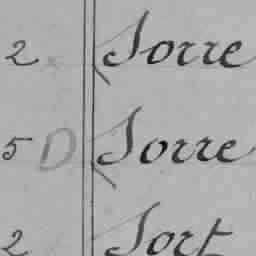 2 Sorre
5 D Sorre
2 Sort